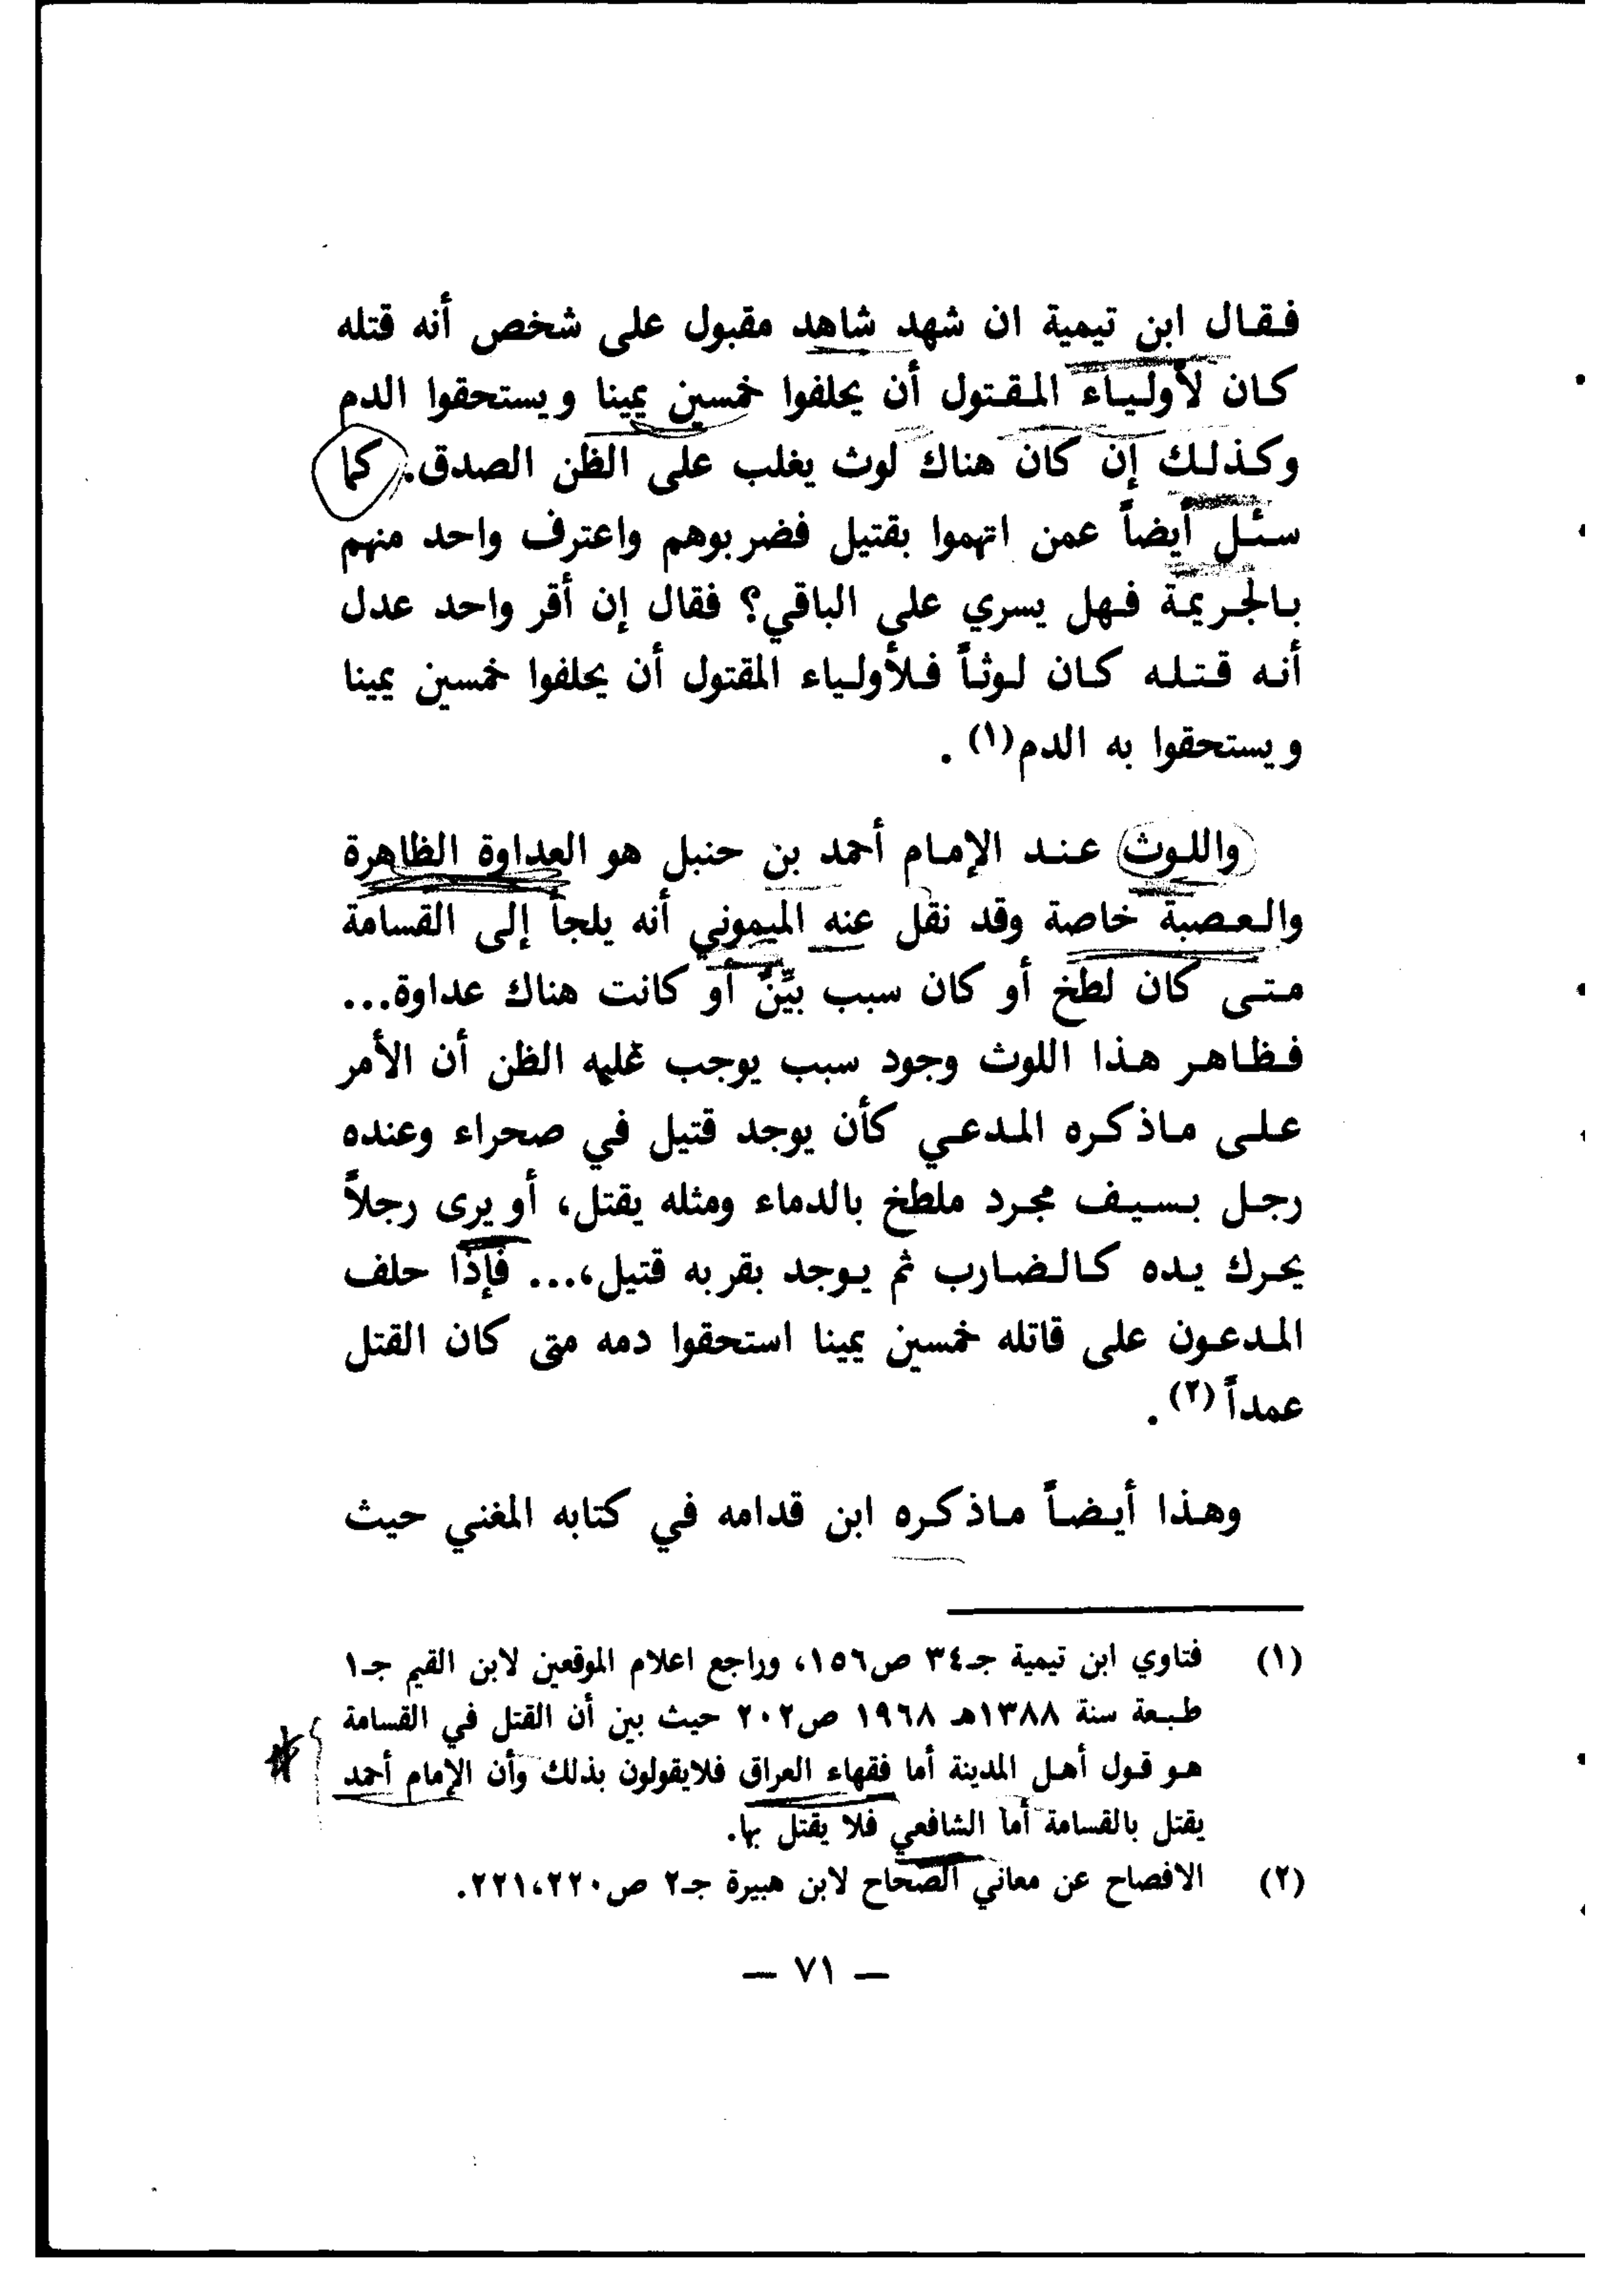 فقال ابن تيمية ان شهد شاهد مقبول على شخص أنه قتله
كان لأولياء المقتول أن يحلفوا خمسين يمينا ويستحقوا الدم
وكذلك إن كان هناك لوث يغلب على الظن الصدق. كما
سئل أيضاً عمن اتهموا بقتيل فضربوهم واعترف واحد منهم
بالجريمة فهل يسري على الباقي؟ فقال إن أقر واحد عدل
أنه قتله كان لوثاً فلأولياء المقتول أن يحلفوا خمسين يمينا
ويستحقوا به الدم(١).
واللوث عند الإمام أحمد بن حنبل هو العداوة الظاهرة
والعصبة خاصة وقد نقل عنه الميموني أنه يلجأ إلى القسامة
متى كان لطخ أو كان سبب بيِّنٌ أو كانت هناك عداوة...
فظاهر هذا اللوث وجود سبب يوجب غلبه الظن أن الأمر
على ماذكره المدعي كأن يوجد قتيل في صحراء وعنده
رجل بسيف مجرد ملطخ بالدماء ومثله يقتل، أو يرى رجلاً
يحرك يده كالضارب ثم يوجد بقربه قتيل،... فإذا حلف
المدعون على قاتله خمسين يمينا استحقوا دمه متى كان القتل
عمداً(٢).
وهذا أيضاً ماذكره ابن قدامه في كتابه المغني حيث
(١) فتاوي ابن تيمية جـ٣٤ ص١٥٦، وراجع اعلام الموقعين لابن القيم جـ١
طبعة سنة ١٣٨٨هـ ١٩٦٨ ص٢٠٢ حيث بين أن القتل في القسامة
هو قول أهل المدينة أما فقهاء العراق فلايقولون بذلك وأن الإمام أحمد
يقتل بالقسامة أما الشافعي فلا يقتل بها.
(٢) الافصاح عن معاني الصحاح لابن هبيرة جـ٢ ص٢٢١،٢٢٠.
— ٧١ —